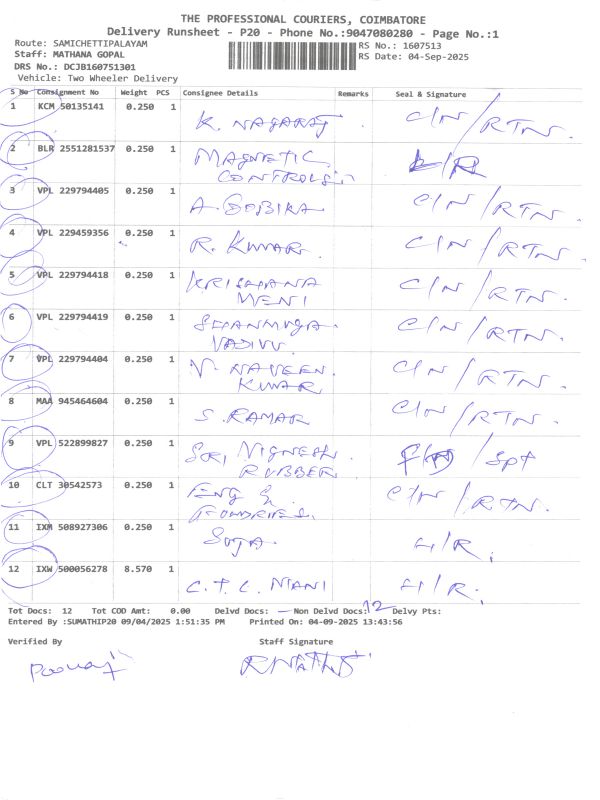 THE PROFESSIONAL COURIERS, COIMBATORE
Delivery Runsheet - P20 - Phone No.:9047080280 - Page No.:1
Route: SAMICHETTIPALAYAM
RS No.: 1607513
Staff: MATHANA GOPAL
RS Date: 04-Sep-2025
DRS No.: DCJB160751301
Vehicle: Two Wheeler Delivery
S No Consignment No Weight PCS Consignee Details Remarks Seal & Signature
1 KCM 50135141 0.250 1 K. NAGARAJ C/N/RTN.
2 BLR 2551281537 0.250 1 MAGNETIC
CONTROLS L/R
3 VPL 229794405 0.250 1 A. C/N/RTN.
4 VPL 229459356 0.250 1 R. KUMAR C/N/RTN.
5 VPL 229794418 0.250 1 KRISHANA
MENI C/N/RTN.
6 VPL 229794419 0.250 1 SHANMUGA
VADIVU. C/N/RTN.
7 VPL 229794404 0.250 1 V. NAVEEN
KUMAR C/N/RTN.
8 MAA 945464604 0.250 1 S. RAMAR C/N/RTN.
9 VPL 522899827 0.250 1 SRI VIGNESH
RUBBER /Spt
10 CLT 30542573 0.250 1 ENG &
FOUNDRIES. C/N/RTN.
11 IXM 508927306 0.250 1 SUJA. H/R.
12 IXW 500056278 8.570 1 C.T.C. MANI H/R.
Tot Docs: 12 Tot COD Amt: 0.00 Delvd Docs: — Non Delvd Docs: 12 Delvy Pts:
Entered By :SUMATHIP20 09/04/2025 1:51:35 PM Printed On: 04-09-2025 13:43:56
Verified By Staff Signature